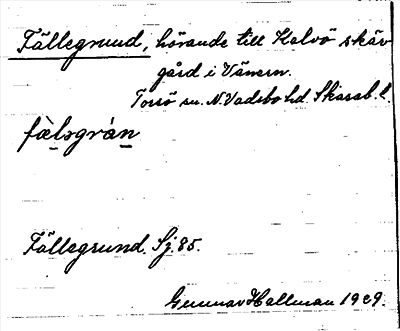 Fällegrund, hörande till Kalvö skär
gård i Vänern.
Torsö sn. N. Vadsbo hd. Skarab. l.
fæ̀lsgràn
Fällegrund. Sj. 85.
Gunnar Hallman 1929.